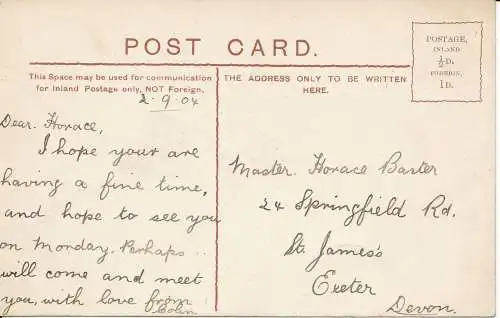 POST CARD.
POSTAGE,
INLAND
½D.
FOREIGN,
1D.
This Space may be used for communication
for Inland Postage only, NOT Foreign.
THE ADDRESS ONLY TO BE WRITTEN
HERE.
2.9.04
Dear. Horace,
I hope your are
having a fine time,
and hope to see you
on Monday. Perhaps..
will come and meet
you, with love from
Colin
Master. Horace Baxter
24 Springfield Rd.
St. James's
Exeter
Devon.